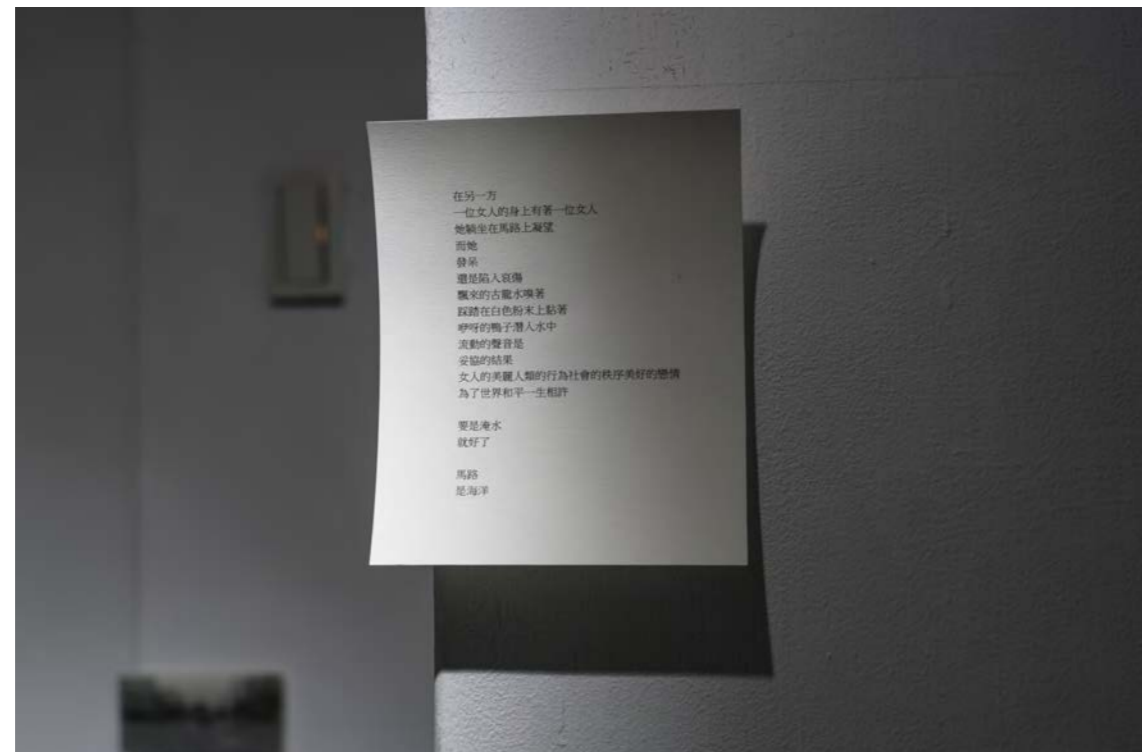 在另一方
一位女人的身上有著一位女人
她躺坐在馬路上凝望
而她
發呆
還是陷入哀傷
飄來的古龍水嗅著
踩踏在白色粉末上黏著
咿呀的鴨子潛入水中
流動的聲音是
妥協的結果
女人的美麗人類的行為社會的秩序美好的戀情
為了世界和平一生相許
要是淹水
就好了
馬路
是海洋